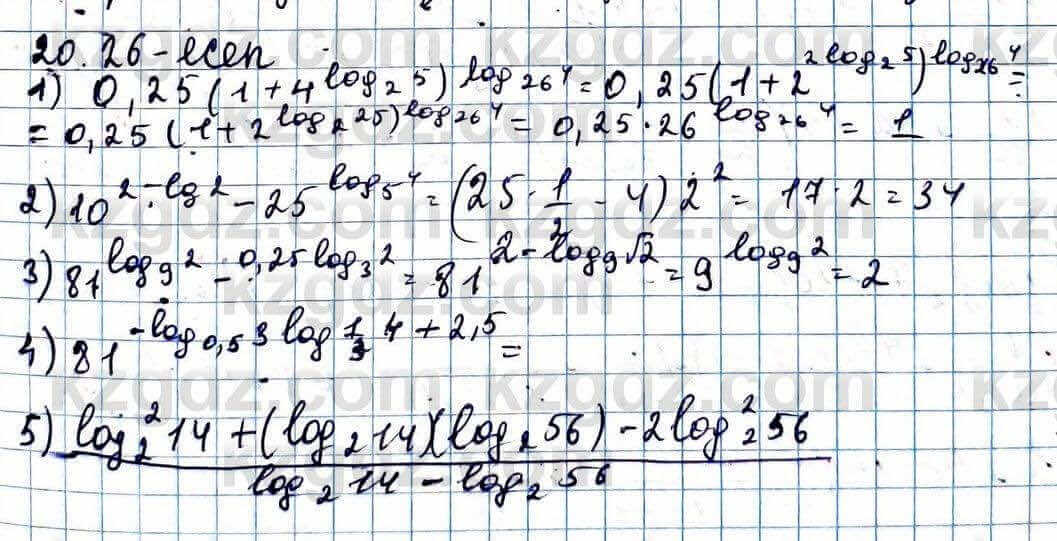 20.26-есеп
1) 0,25(1+4^{log_2 5})^{log_{26} 4} = 0,25(1+2^{2log_2 5})^{log_{26} 4} =
= 0,25(1+2^{log_2 25})^{log_{26} 4} = 0,25·26^{log_{26} 4} = 1
2) 10^{2-lg 2} - 25^{log_5 4} = (25·1/2 - 4) 2^2 = 17·2 = 34
3) 81^{log_9 2 - 0,25log_3 2} = 81^{2-log_9 √2} = 9^{log_9 2} = 2
4) 81^{-log_{0,5} 3 log_{1/3} 4 + 2,5} =
5) log_2^2 14 + (log_2 14)(log_2 56) - 2log_2^2 56
log_2 14 - log_2 56
kzgdz.com